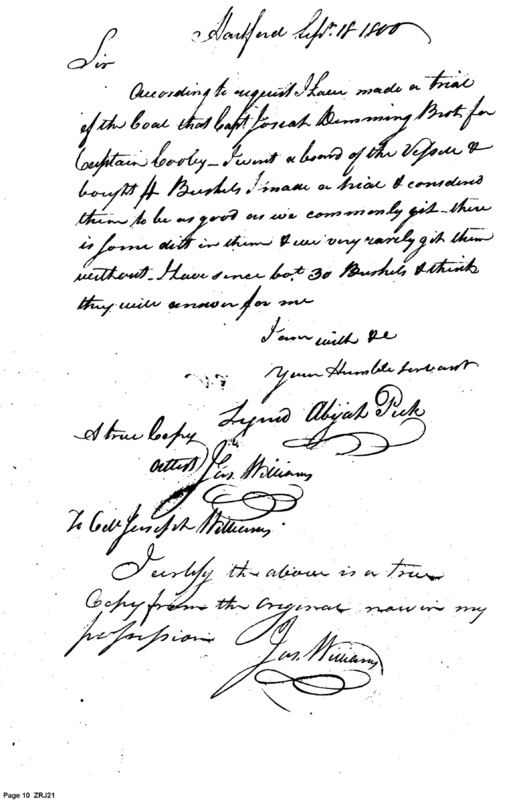 Hartford Sepr. 18 1800
Sir
According to request I have made a trial
of the Coal that Capt Josiah Demming Brot. for
Captain Cooley - I went a board of the Vessell &
bought 4 Bushels I made a trial & considerd
them to be as good as we commonly git - there
is some dirt in them & we very rarely git them
without - I have since bot. 30 Bushels & think
they will answer for me
I am with &c
Your Humble Servant
Signd Abijah Peck
A true Copy
attest Jos. Williams
To Coll Joseph Williams
I certify the above is a true
Copy from the original now in my
possession Jos. Williams
Page 10 ZRJ21